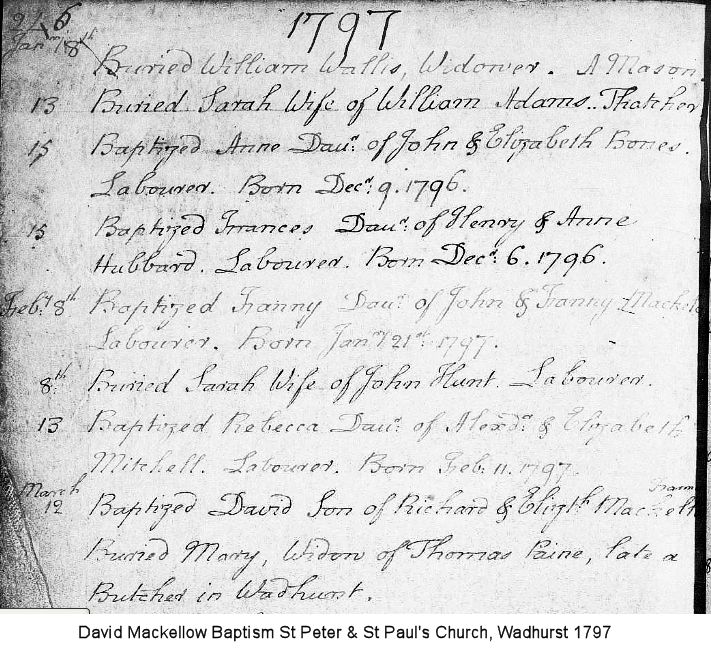 1797
Jan.ry 8th Buried William Wallis, Widower. A Mason
13 Buried Sarah Wife of William Adams. Thatcher
15 Baptized Anne Daur. of John & Elizabeth Bones.
Labourer. Born Decr. 9. 1796.
15 Baptized Frances Daur. of Henry & Anne
Hubbard. Labourer. Born Decr. 6. 1796.
Feb.y 8th Baptized Fanny Daur. of John & Fanny
Labourer. Born Jan.ry 21st 1797.
8th Buried Sarah Wife of John Hunt. Labourer.
13 Baptized Rebecca Daur. of Alexdr. & Elizabeth
Mitchell. Labourer. Born Feb. 11. 1797.
March
12 Baptized David Son of Richard & Elizth.
Buried Mary, Widow of Thomas Paine, late a
Butcher in Wadhurst.
David Mackellow Baptism St Peter & St Paul's Church, Wadhurst 1797